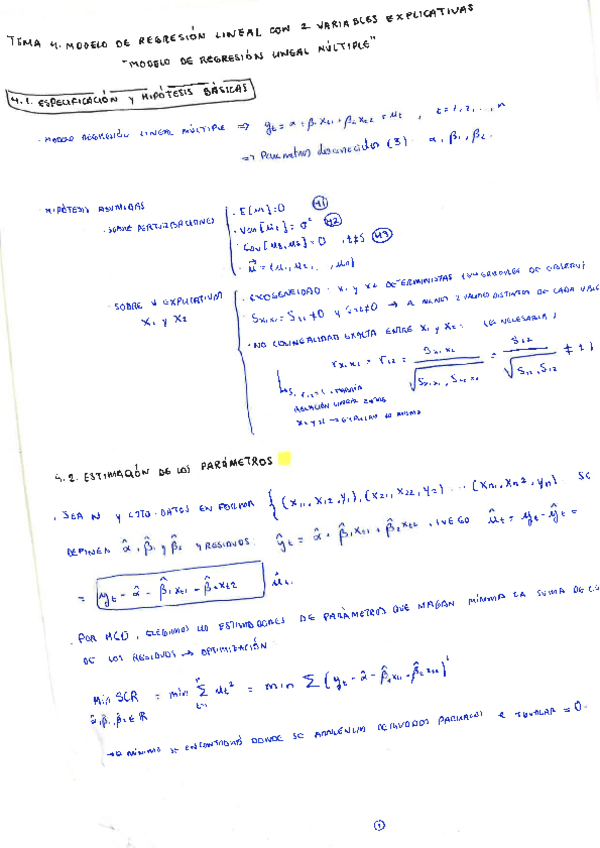 TEMA 4. MODELO DE REGRESIÓN LINEAL CON 2 VARIABLES EXPLICATIVAS
"MODELO DE REGRESIÓN LINEAL MÚLTIPLE"
4.1. ESPECIFICACIÓN Y HIPÓTESIS BÁSICAS
· MODELO REGRESIÓN LINEAL MÚLTIPLE => yt = α + β1 xt1 + β2 xt2 + ut , t=1,2,...,n
=> Parámetros desconocidos (3) · α, β1, β2.
HIPÓTESIS ASUMIDAS
· SOBRE PERTURBACIONES
· E[ut]=0 (H1)
· Var[ut]=σ² (H2)
· Cov[ut,us]=0 , t≠s (H3)
· u = (u1, u2, ..., un)
· SOBRE V EXPLICATIVAS
X1 y X2
· EXOGENEIDAD · X1 y X2 DETERMINISTAS
S11 ≠0 y S22≠0 → A MENOS 2 VALORES DISTINTOS DE CADA
· NO COLINEALIDAD EXACTA ENTRE X1 y X2 : (ES NECESARIA)
r x1 x2 = r12 = S x1 x2 / √ S x1 x1 , S x2 x2 = S12 / √ S11, S12 ≠ ±1
RELACIÓN LINEAL ENTRE
4.2. ESTIMACIÓN DE LOS PARÁMETROS
· SEA N DATOS EN FORMA { (x11, x12, y1), (x21, x22, y2) ... (xn1, xn2, yn). SE
DEFINEN α̂, β̂1 y β̂2 y RESIDUOS: ŷt = α̂ + β̂1 xt1 + β̂2 xt2 , LUEGO ût = yt - ŷt =
= yt - α̂ - β̂1 xt1 - β̂2 xt2 ût.
· POR MCO, ELEGIMOS LOS ESTIMADORES DE PARÁMETROS QUE HAGAN MÍNIMA LA SUMA DE
DE LOS RESIDUOS → OPTIMIZACIÓN
Min SCR = min Σ ut² = min Σ (yt - α̂ - β̂1 xt1 - β̂2 xt2)²
α̂, β̂1, β̂2 ∈ R
→ MÍNIMO SE ENCONTRARÁ DONDE SE ANULEN LAS DERIVADAS PARCIALES e IGUALAR = 0.
1